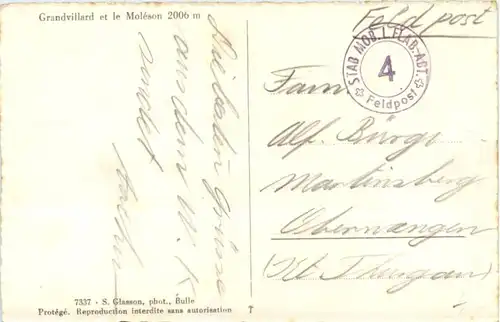 Grandvillard et le Moléson 2006 m
Die besten Grüsse
aus dem W. K.
sendet
Feldpost
STAB MOB. L. FLAB. ABT.
4
Feldpost
Fam.
Alf. Bürgi
Martinsberg
Oberwangen
(Kt. Thurgau)
7337 - S. Glasson, phot., Bulle
Protégé. Reproduction interdite sans autorisation